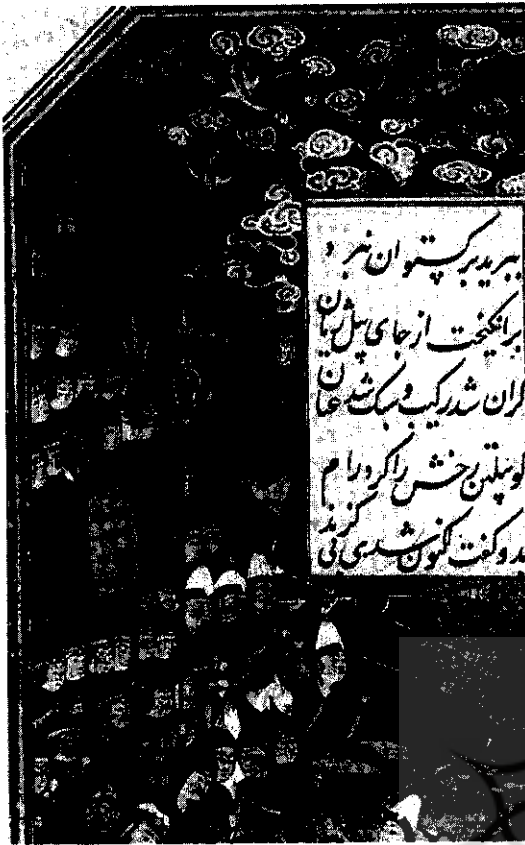 ببرید برکستوان نبرد
برانکیخت از جای پیل ژیان
کران شد رکیب و سبک شد عنان
کو پیلتن رخش را کرد رام
بدو کفت اکنون شدی بی کزند